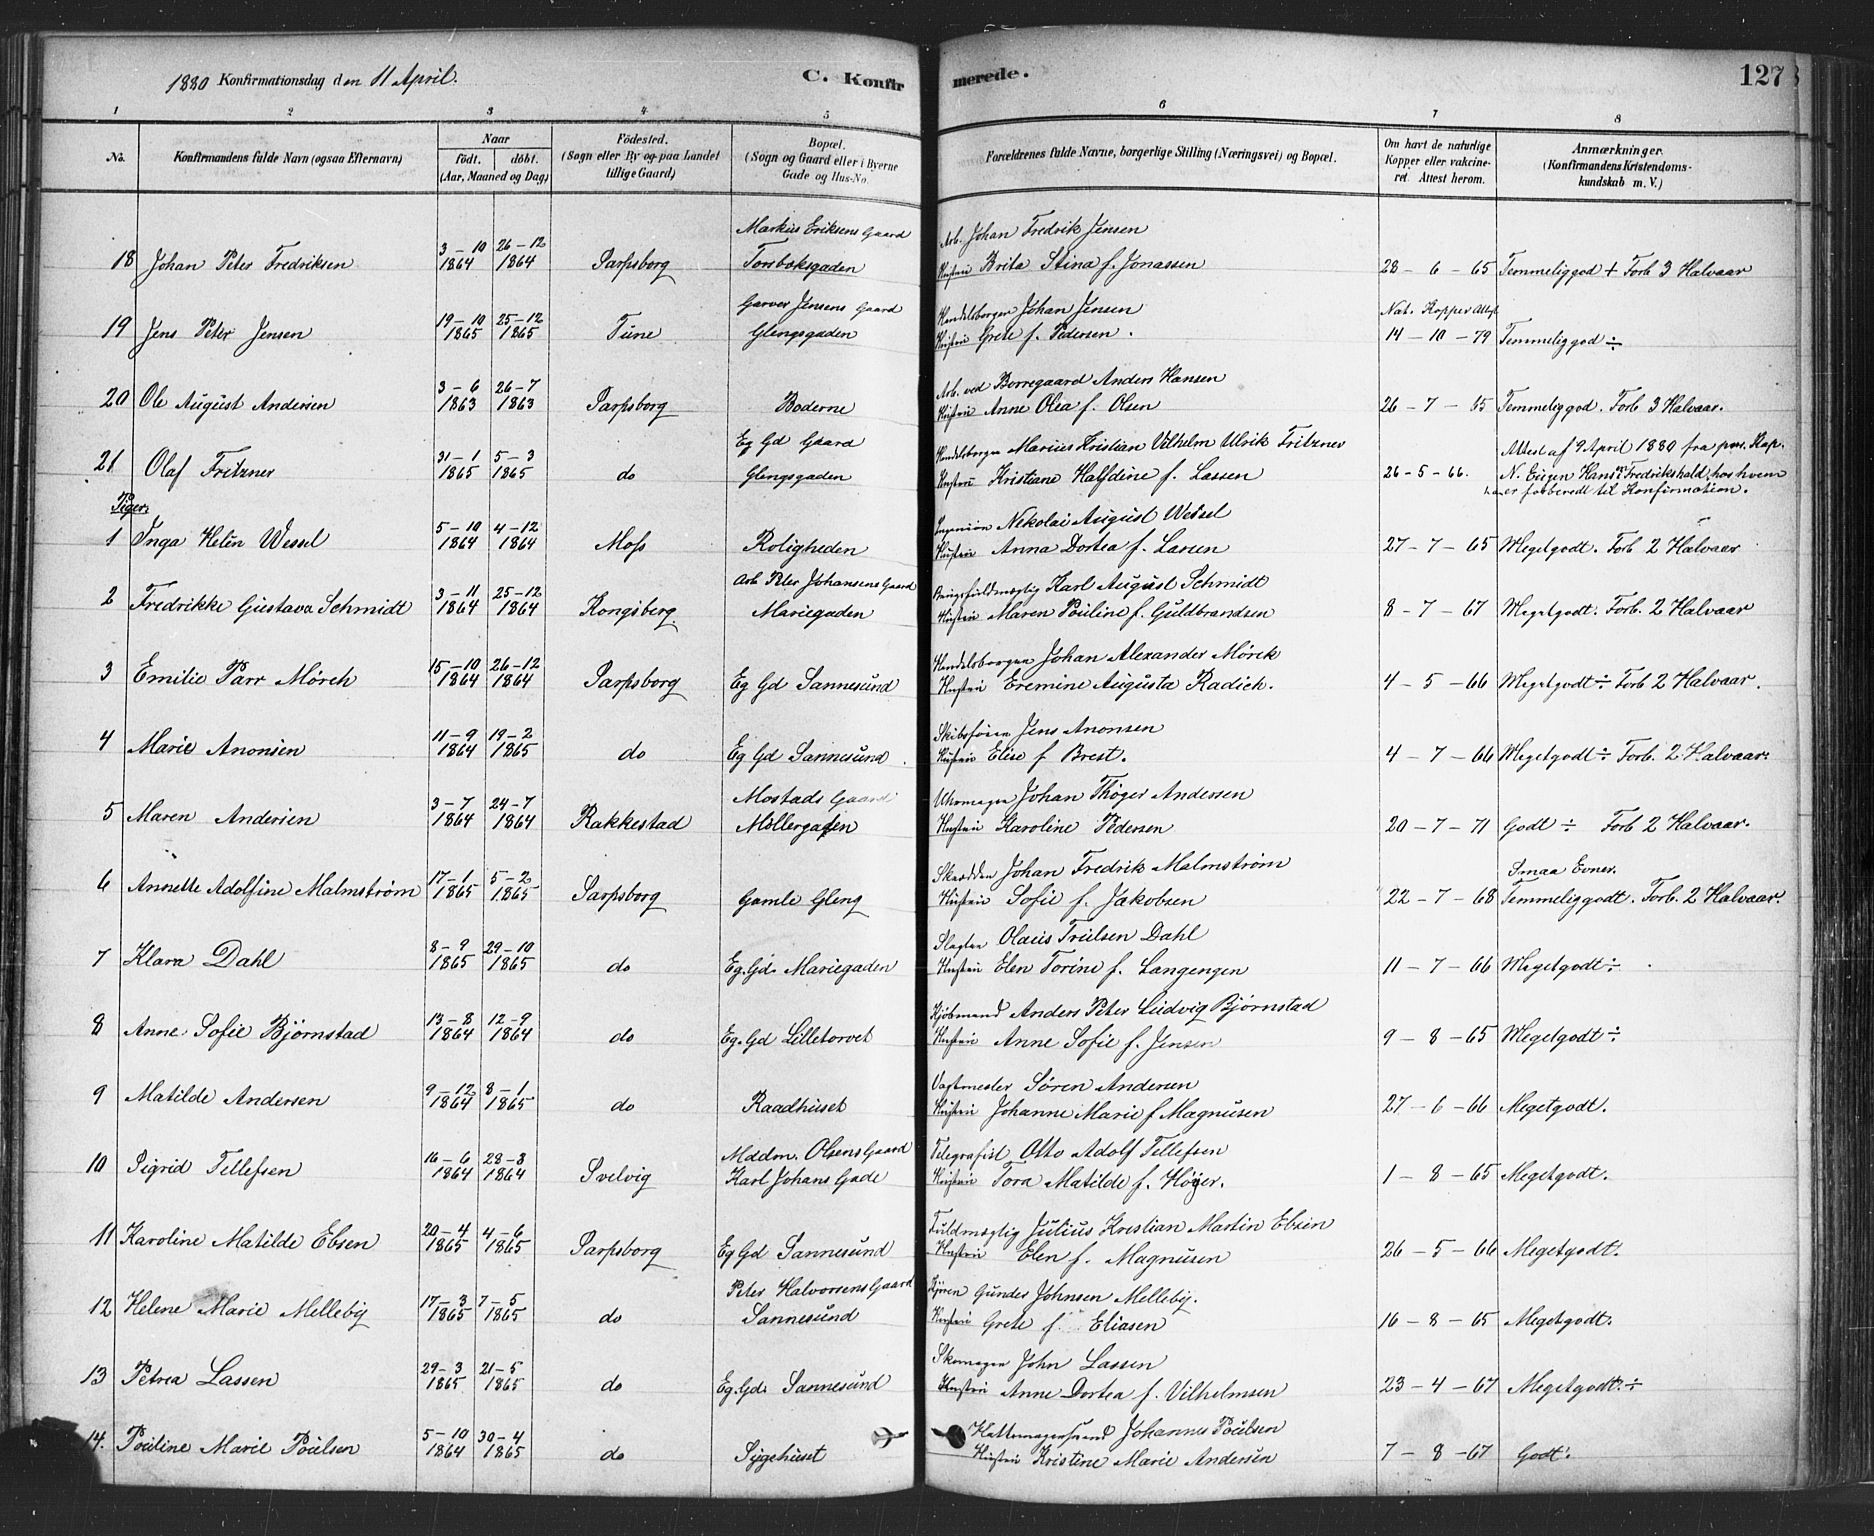 1880 Konfirmationsdag den 11 April.
C. Konfir
merede.
127
1 2 3 4 5 6 7 8
No.
Konfirmandens fulde Navn (ogsaa Efternavn)
Naar
födt. döbt.
(Aar, Maaned og Dag)
Födested.
(Sogn eller By og paa Landet
tillige Gaard)
Bopæl.
(Sogn og Gaard eller i Byerne
Gade og Hus-No.
Forældrenes fulde Navne, borgerlige Stilling (Næringsvei) og Bopæl.
Om havt de naturlige
Kopper eller vakcine-
ret. Attest herom.
Anmærkninger.
(Konfirmandens Kristendoms-
kundskab m. V.)
3 – 10 26 – 12 Markus Eriksens Gaard Arb. Johan Fredrik Jensen
18 Johan Peter Fredriksen 1864 1864 Sarpsborg Torsboksgaden Hustru Brita Stina f. Jonassen 28 – 6 – 65 Temmeliggod + Forb 3 Halvaar
19 – 10 25 – 12 Garver Jensens Gaard Handelsborger Johan Jensen Nat. Kopper Attest
19 Jens Peter Jensen 1865 1865 Tune Glengsgaden Hustru Grete f. Pedersen. 14 – 10 – 79 Temmeliggod ÷
3 – 6 26 – 7 Arb. ved Borregaard Anders Hansen
20 Ole August Andersen 1863 1863 Sarpsborg Boderne Hustru Anne Olea f. Olsen 26 – 7 – 65 Temmeliggod. Forb 3 Halvaar.
31 – 1 5 – 3 Eg Gd Gaard Handelsborger Marius Kristian Vilhelm Ulrik Fritzner Attest af 9 April 1880 fra pers. Kap.
21 Olaf Fritzner 1865 1865 do Glengsgaden Hustru Kristiane Halfdine f. Lassen 26 – 5 – 66. N. Eugen Hansen Fredrikshald, hos hvem
han er forberedt til Konfirmation.
Piger.
5 – 10 4 – 12 Ingeniør Nikolai August Wessel
1 Inga Helén Wessel 1864 1864 Moss Roligheden Hustru Anna Dortea f. Larsen 27 – 7 – 65 Megetgodt. Forb 2 Halvaar
3 – 11 25 – 12 Arb Peter Johansens Gaard Brugsfuldmægtig Karl August Schmidt
2 Fredrikke Gustava Schmidt 1864 1864 Kongsberg. Mariegaden Hustru Maren Pouline f. Guldbrandsen 8 – 7 – 67 Megetgodt. Forb. 2 Halvaar
15 – 10 26 – 12 Handelsborger Johan Alexander Mörch
3 Emilie Parr Mörch 1864 1864 Sarpsborg Eg Gd Sannesund Hustru Eremine Augusta Radich. 4 – 5 – 66 Megetgodt ÷ Forb 2 Halvaar.
11 – 9 19 – 2 Skibsfører Jens Anonsen
4 Marie Anonsen 1864 1865 do Eg Gd Sannesund. Hustru Elise f Brest. 4 – 7 – 66 Megetgodt ÷ Forb. 2 Halvaar.
3 – 7 24 – 7 Mostads Gaard Uhrmager Johan Thöger Andersen
5 Maren Andersen 1864 1864 Rakkestad Möllergaden Hustru Karoline Pedersen 20 – 7 – 71 Godt ÷ Forb 2 Halvaar.
17 – 1 5 – 2 Skrædder Johan Fredrik Malmström Smaa Evner.
6 Annette Adolfine Malmström 1865 1865 Sarpsborg Gamle Gleng Hustru Sofie f. Jakobsen 22 – 7 – 68 Temmeliggodt. Forb. 2 Halvaar.
8 – 9 29 – 10 Slagter Olaus Truelsen Dahl
7 Klara Dahl 1865 1865 do Eg. Gd. Mariegaden Hustru Elen Torine f. Langengen 11 – 7 – 66 Megetgodt ÷
13 – 8 12 – 9 Kjöbmand Anders Peter Ludvig Björnstad
8 Anne Sofie Björnstad 1864 1864 do Eg. Gd Lilletorvet Hustru Anne Sofie f. Jensen 9 – 8 – 65 Megetgodt ÷
9 – 12 8 – 1 Vagtmester Sören Andersen
9 Matilde Andersen 1864 1865 do Raadhuset Hustru Johanne Marie f Magnusen 27 – 6 – 66 Megetgodt.
16 – 6 28 – 8 Mdm. Olsens Gaard Telegrafist Otto Adolf Tellefsen
10 Sigrid Tellefsen 1864 1864 Svelvig Karl Johans Gade Hustru Tora Matilde f. Höyer. 1 – 8 – 65 Megetgodt.
20 – 4 4 – 6 Fuldmægtig Julius Kristian Martin Ebsen
11 Karoline Matilde Ebsen 1865 1865 Sarpsborg Eg Gd Sannesund Hustru Elen f. Magnusen 26 – 5 – 66 Megetgodt.
17 – 3 7 – 5 Peter Halvorsens Gaard Gunder Johnsen Melleby.
12 Helene Marie Melleby 1865 1865 do Sannesund Hustru Grete f. Eliasen 16 – 8 – 65 Megetgodt.
29 – 3 21 – 5 Skomager John Lassen
13 Petrea Lassen 1865 1865 do Eg. Gd. Sannesund Hustru Anne Dortea f. Vilhelmsen 23 – 4 – 67 Megetgodt. ÷
5 – 10 30 – 4 Hattemagersvend Johannes Poulsen
14. Pouline Marie Poulsen 1864 1865 do Sygehuset Hustru Kristine Marie Andersen 7 – 8 – 67 Godt.